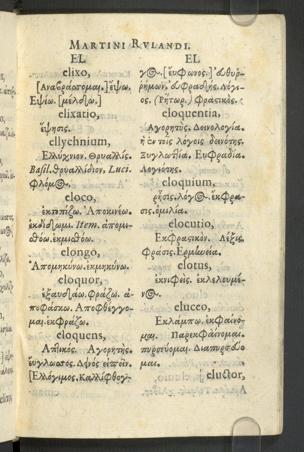 MARTINI RVLANDI.
EL
elixo,
[Αναβράσσομαι.] ἕψω.
Εψέω. [μέλδω.]
elixatio,
ἕψησις.
ellychnium,
Ελλύχνιον. Θρυαλλίς.
Basil. Θρυαλλίδιον. Luci.
Φλόμος.
eloco,
ἐκτοπίζω. Ἀποκινέω.
ἐκδίδωμι. Item. ἀπομι-
σθόω. ἐκμισθόω.
elongo,
Ἀπομηκύνω. ἐκμηκύνω.
eloquor,
ἐξαυδάω. Φράζω. ἀ-
ποφάσκω. Αποφθέγγο-
μαι. ἐκφράζω.
eloquens,
Αττικός. Αγορητὴς.
εὔγλωσσος. Δεινὸς εἰπεῖν.
[Ελλόγιμος. Καλλίφθογ-
EL
γος. [εὔφωνος.]
ος. (Ρήτωρ.) Φραστικός.
eloquentia,
Αγορητύς. Δεινολογία.
ἡ ἐν τοῖς λόγοις δεινότης.
Ευγλωττία. Ευφραδία.
Λογιότης.
eloquium,
ῥῆσις. λόγος. ἔκφρα-
σις. ὁμιλία.
elocutio,
Εκφραστικόν. Λέξις.
Φράσις. Ερμηνεία.
elotus,
ἐκνιφείς. ἐκλελουμέ-
νος.
eluceo,
Εκλάμπω. ἐκφαίνο-
μαι. παρεκφαίνομαι.
πυρσεύομαι. Διαπυρσεύο-
μαι.
eluctor,